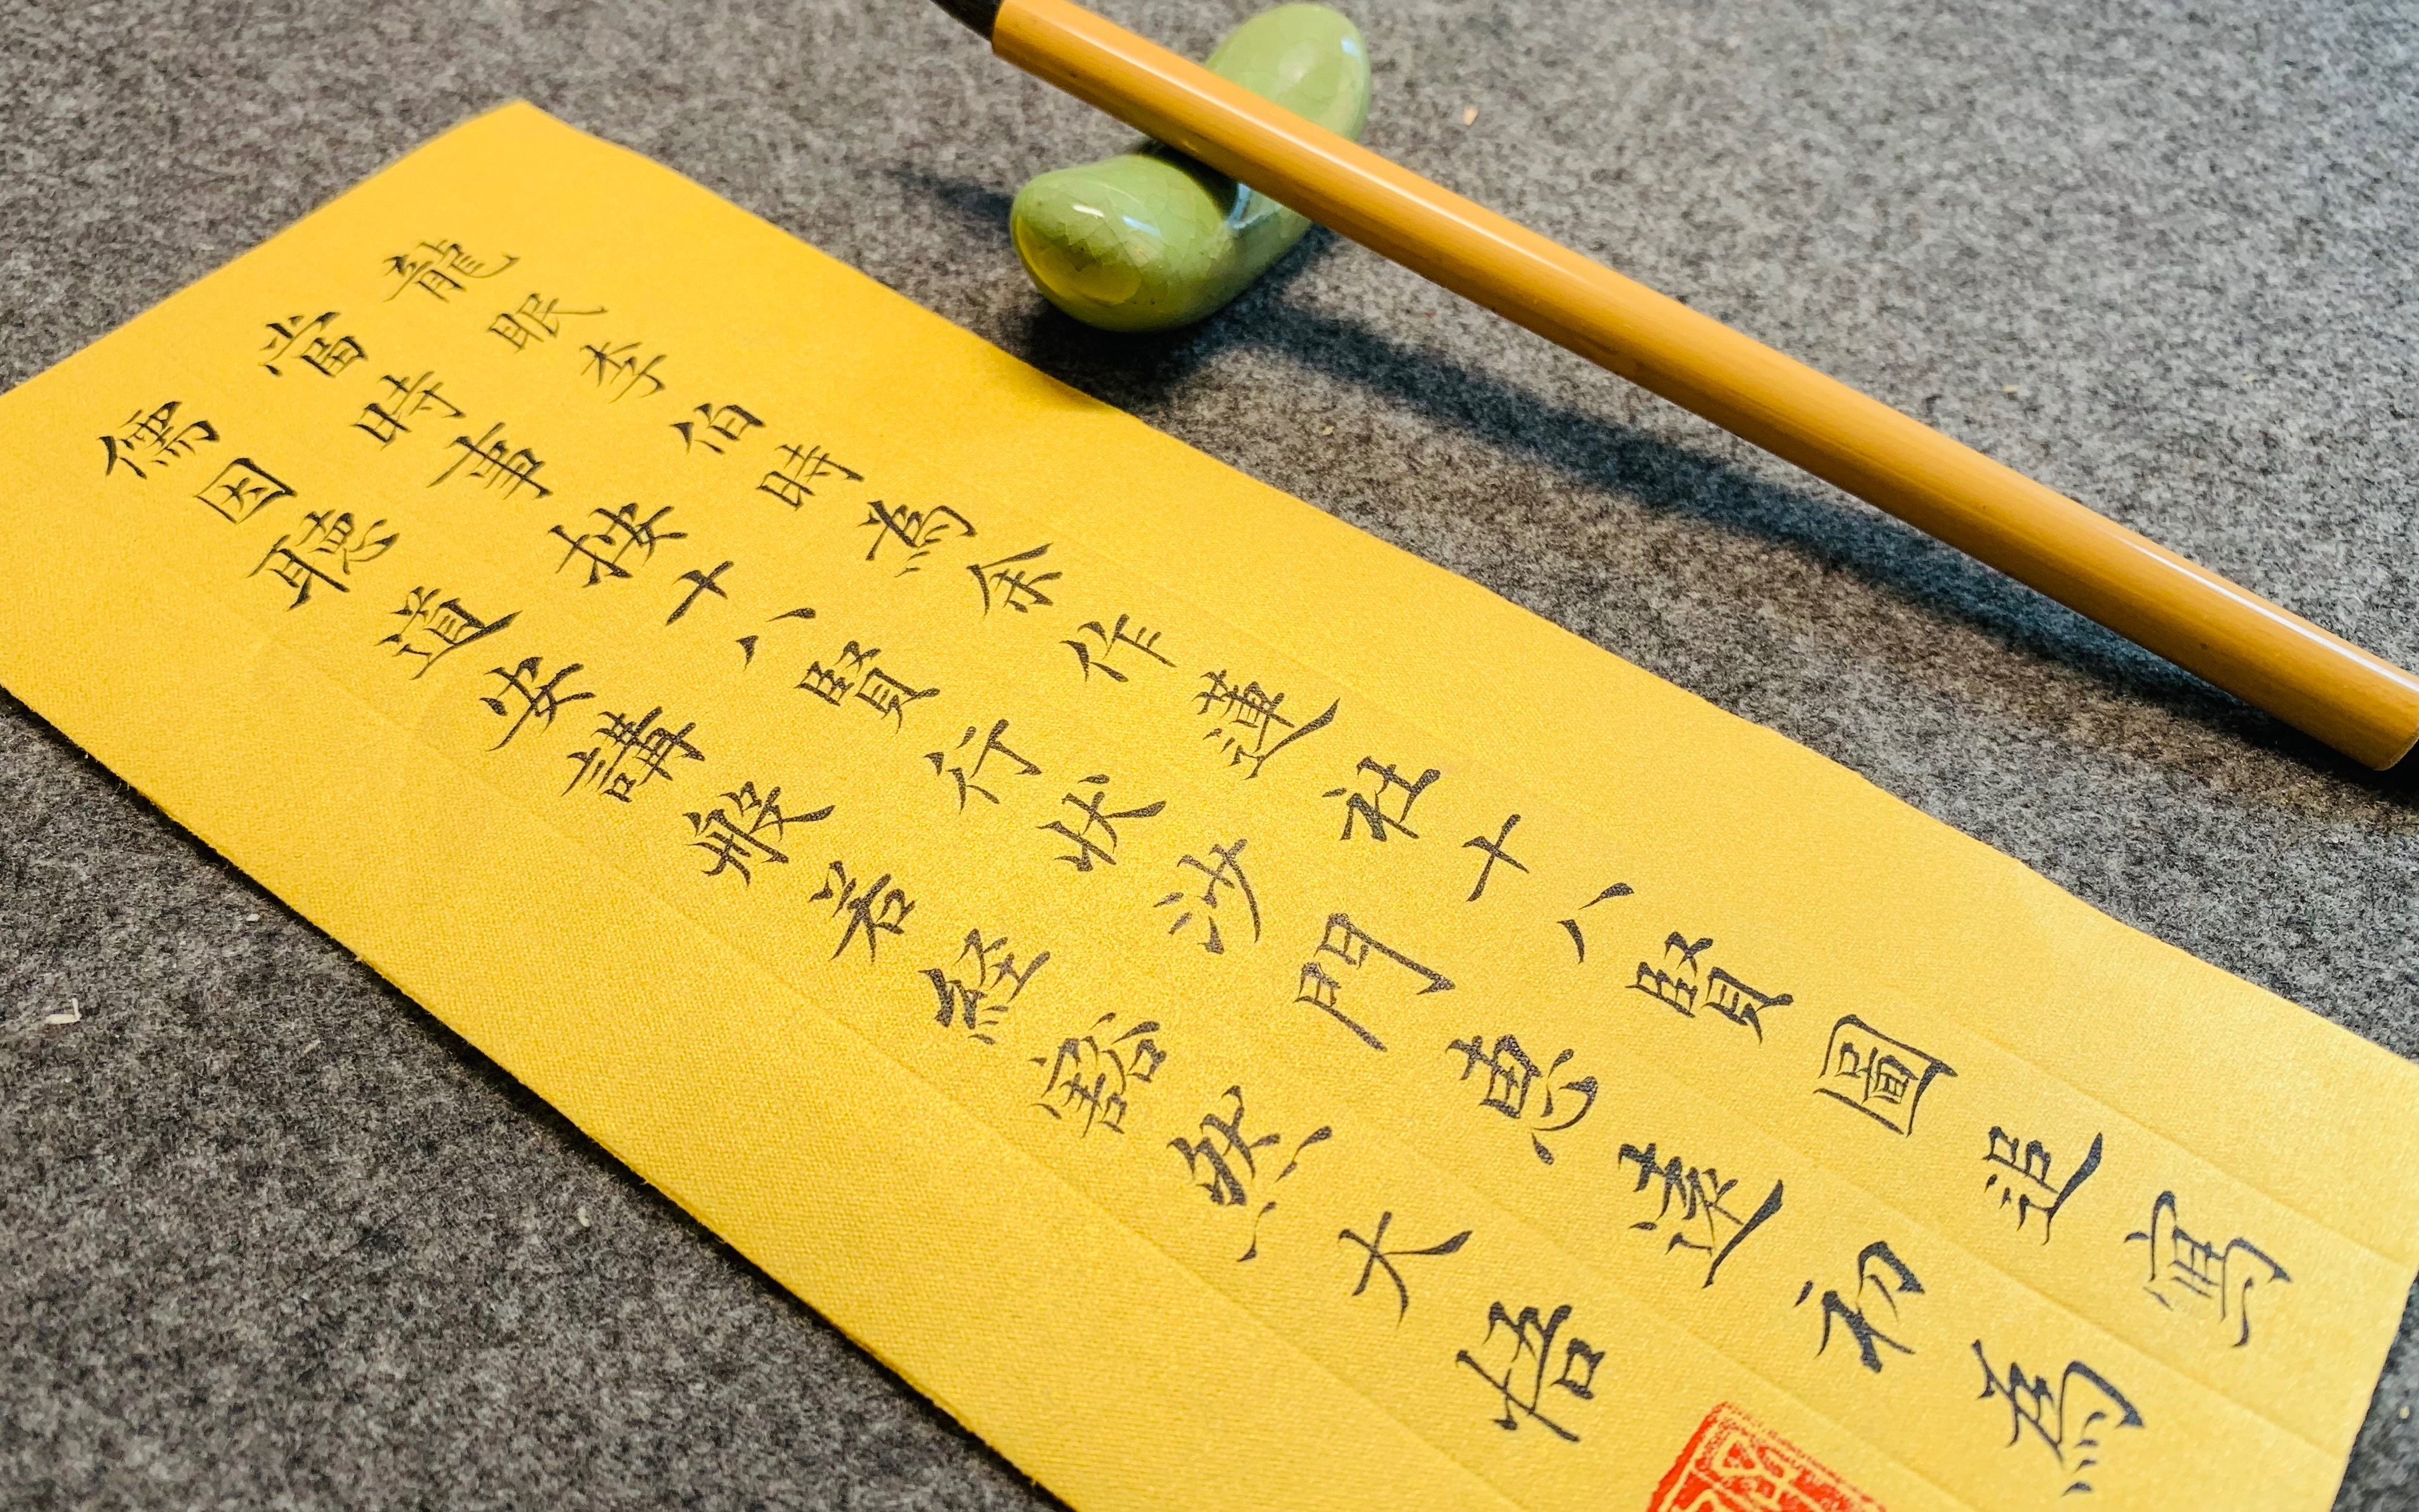 龍眠李伯時為余作蓮社十八賢圖追寫
當時事按十八賢行狀沙門惠遠初為
儒因聽道安講般若經豁然大悟